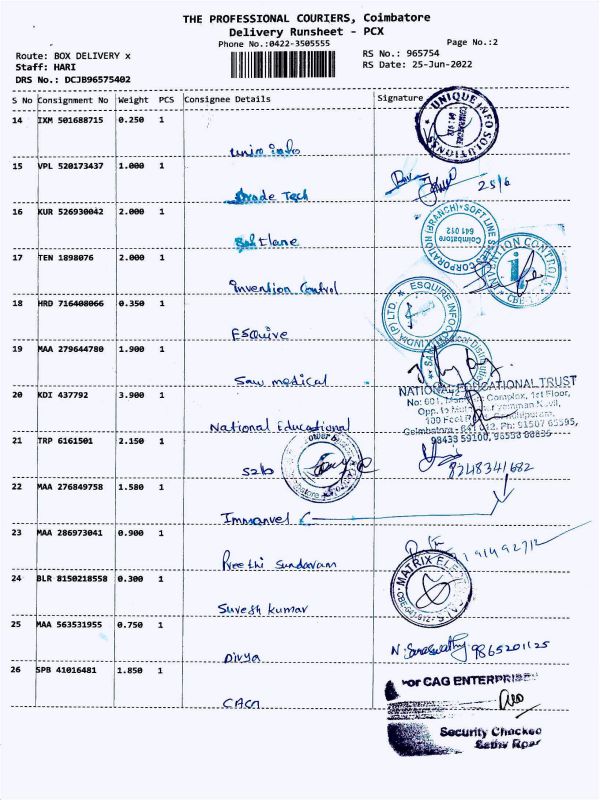 THE PROFESSIONAL COURIERS, Coimbatore
Delivery Runsheet - PCX
Phone No.:0422-3505555
Page No.:2
Route: BOX DELIVERY x
RS No.: 965754
Staff: HARI
RS Date: 25-Jun-2022
DRS No.: DCJB96575402
S No Consignment No Weight PCS Consignee Details Signature
14 IXM 501688715 0.250 1
UNIQUE INFO SOLUTIONS
15 VPL 520173437 1.000 1
Trade Tech
25/6
16 KUR 526930042 2.000 1
Softlane
Coimbatore
641 012
17 TEN 1898076 2.000 1
Invention Control
INVENTION CONTROL
CBE
18 HRD 716408066 0.350 1
Esquive
ESQUIRE INFOC
19 MAA 279644780 1.900 1
Saw medical
20 KDI 437792 3.900 1
National Educational
NATIONAL EDUCATIONAL TRUST
No: 601, Complex, 1st Floor,
100 Feet
Coimbatore - 641 012. Ph: 91507 65595,
98433 59100, 96553 88835
21 TRP 6161501 2.150 1
8248341682
22 MAA 276849758 1.580 1
Immanvel
23 MAA 286973041 0.900 1
Preethi Sundaram
24 BLR 8150218558 0.300 1
Suresh kumar
MATRIX
25 MAA 563531955 0.750 1
Divya
N. Saraswathy 9865201125
26 SPB 41016481 1.850 1
CAG
For CAG ENTERPRISES
Security Checked